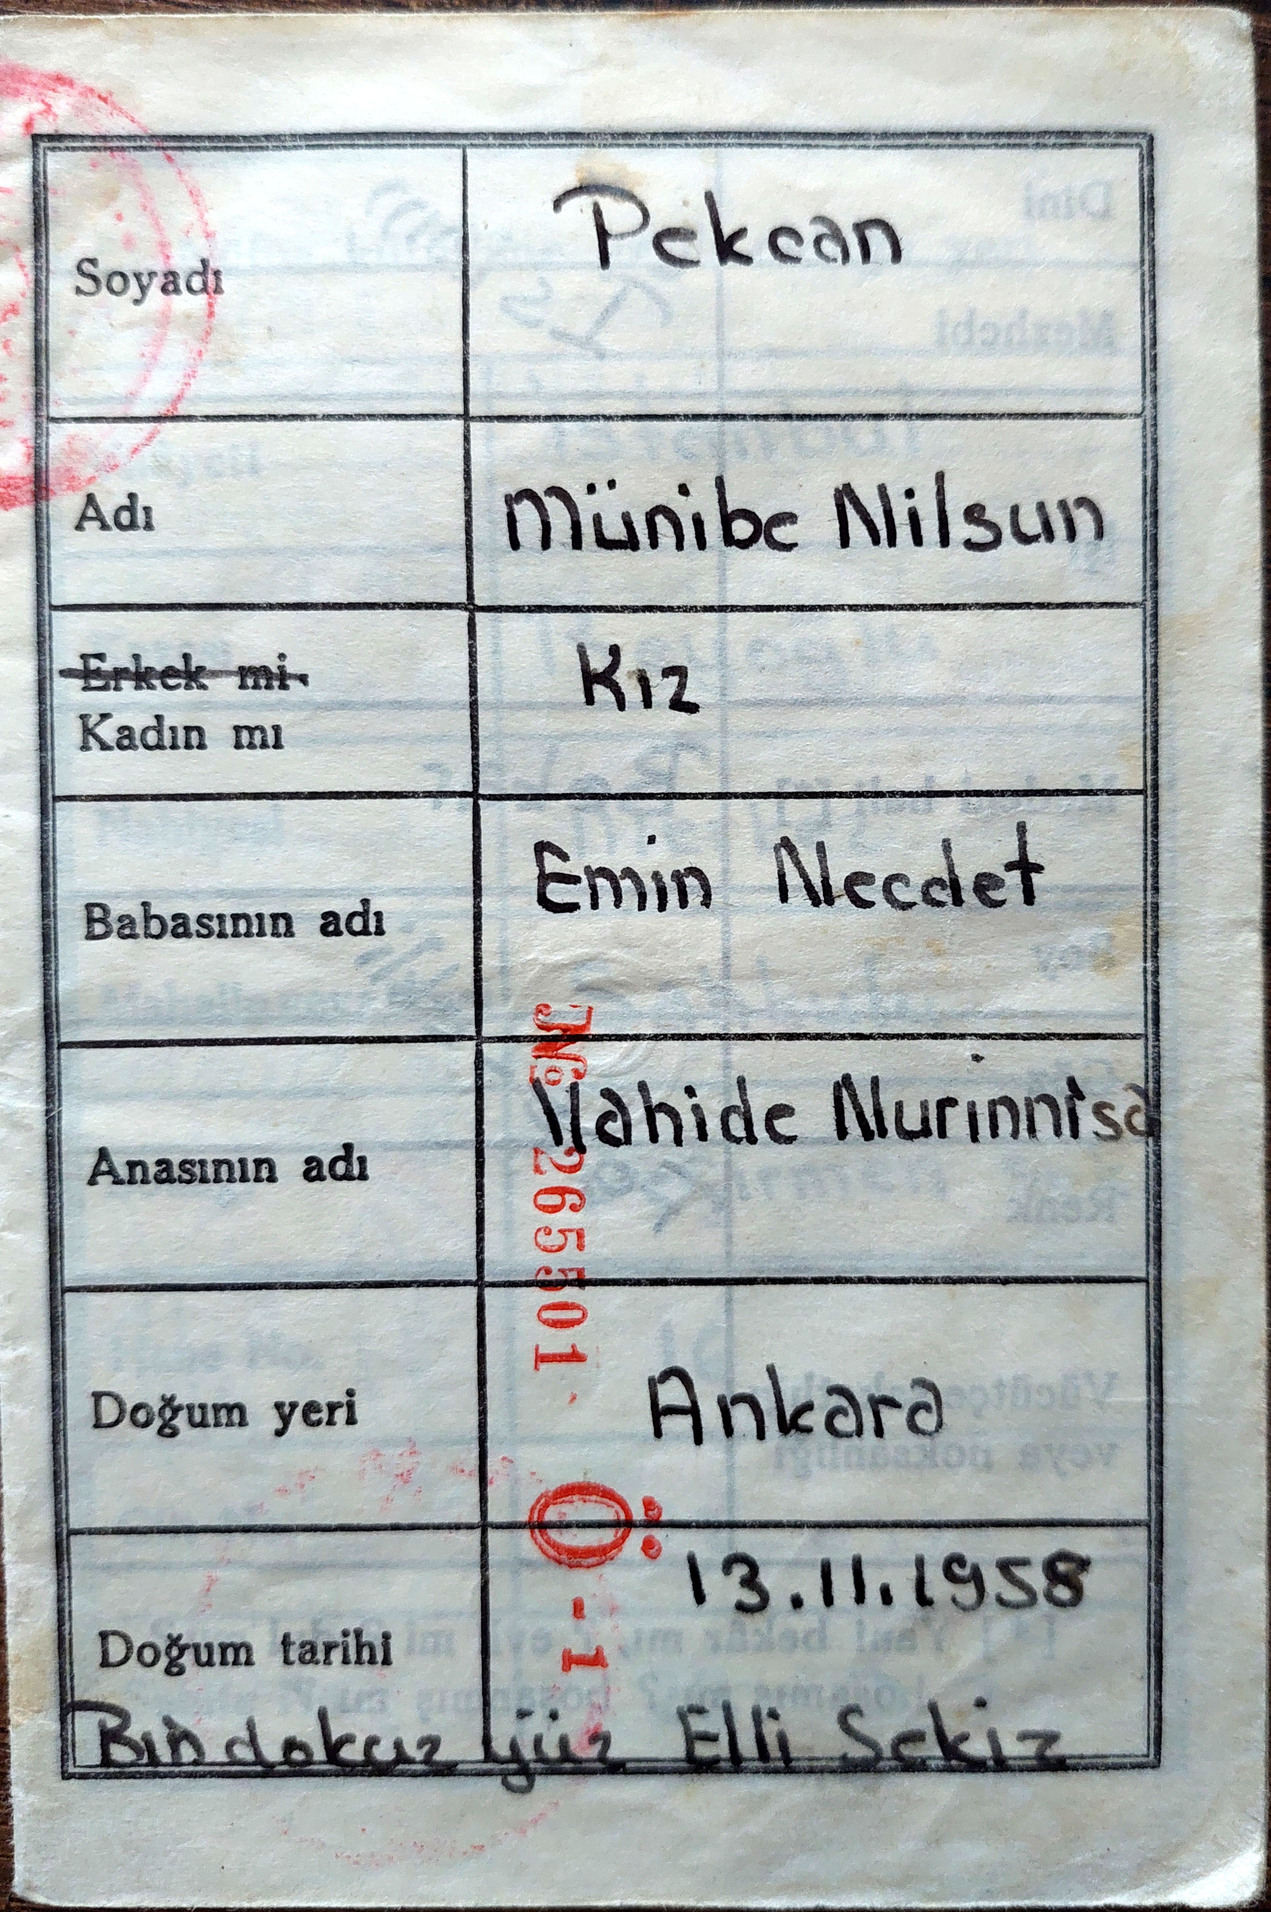 Soyadı Pekcan
Adı Münibe Nilsun
Erkek mi Kız
Kadın mı
Babasının adı Emin Necdet
Anasının adı Vahide Nurinnisa
№ 265501
Doğum yeri Ankara
Ö-1
Doğum tarihi 13.11.1958
Bin dokuz yüz Elli Sekiz